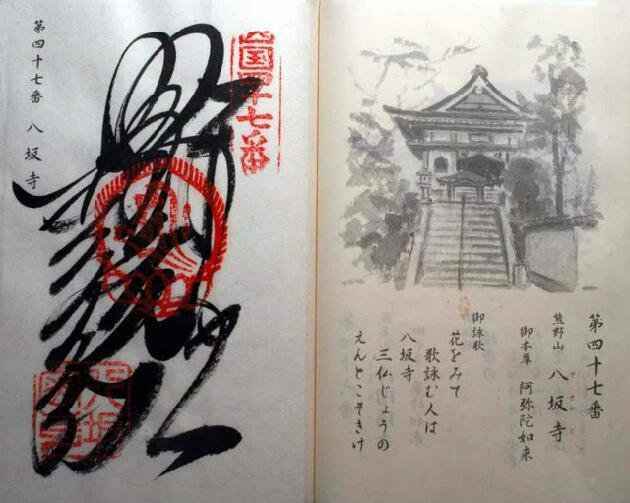 第四十七番
やさかじ
熊野山 八坂寺
御本尊 阿弥陀如来
御詠歌
花をみて
歌詠む人は
八坂寺
三仏じょうの
えんとこそきけ
四国四十七番
第四十七番 八坂寺